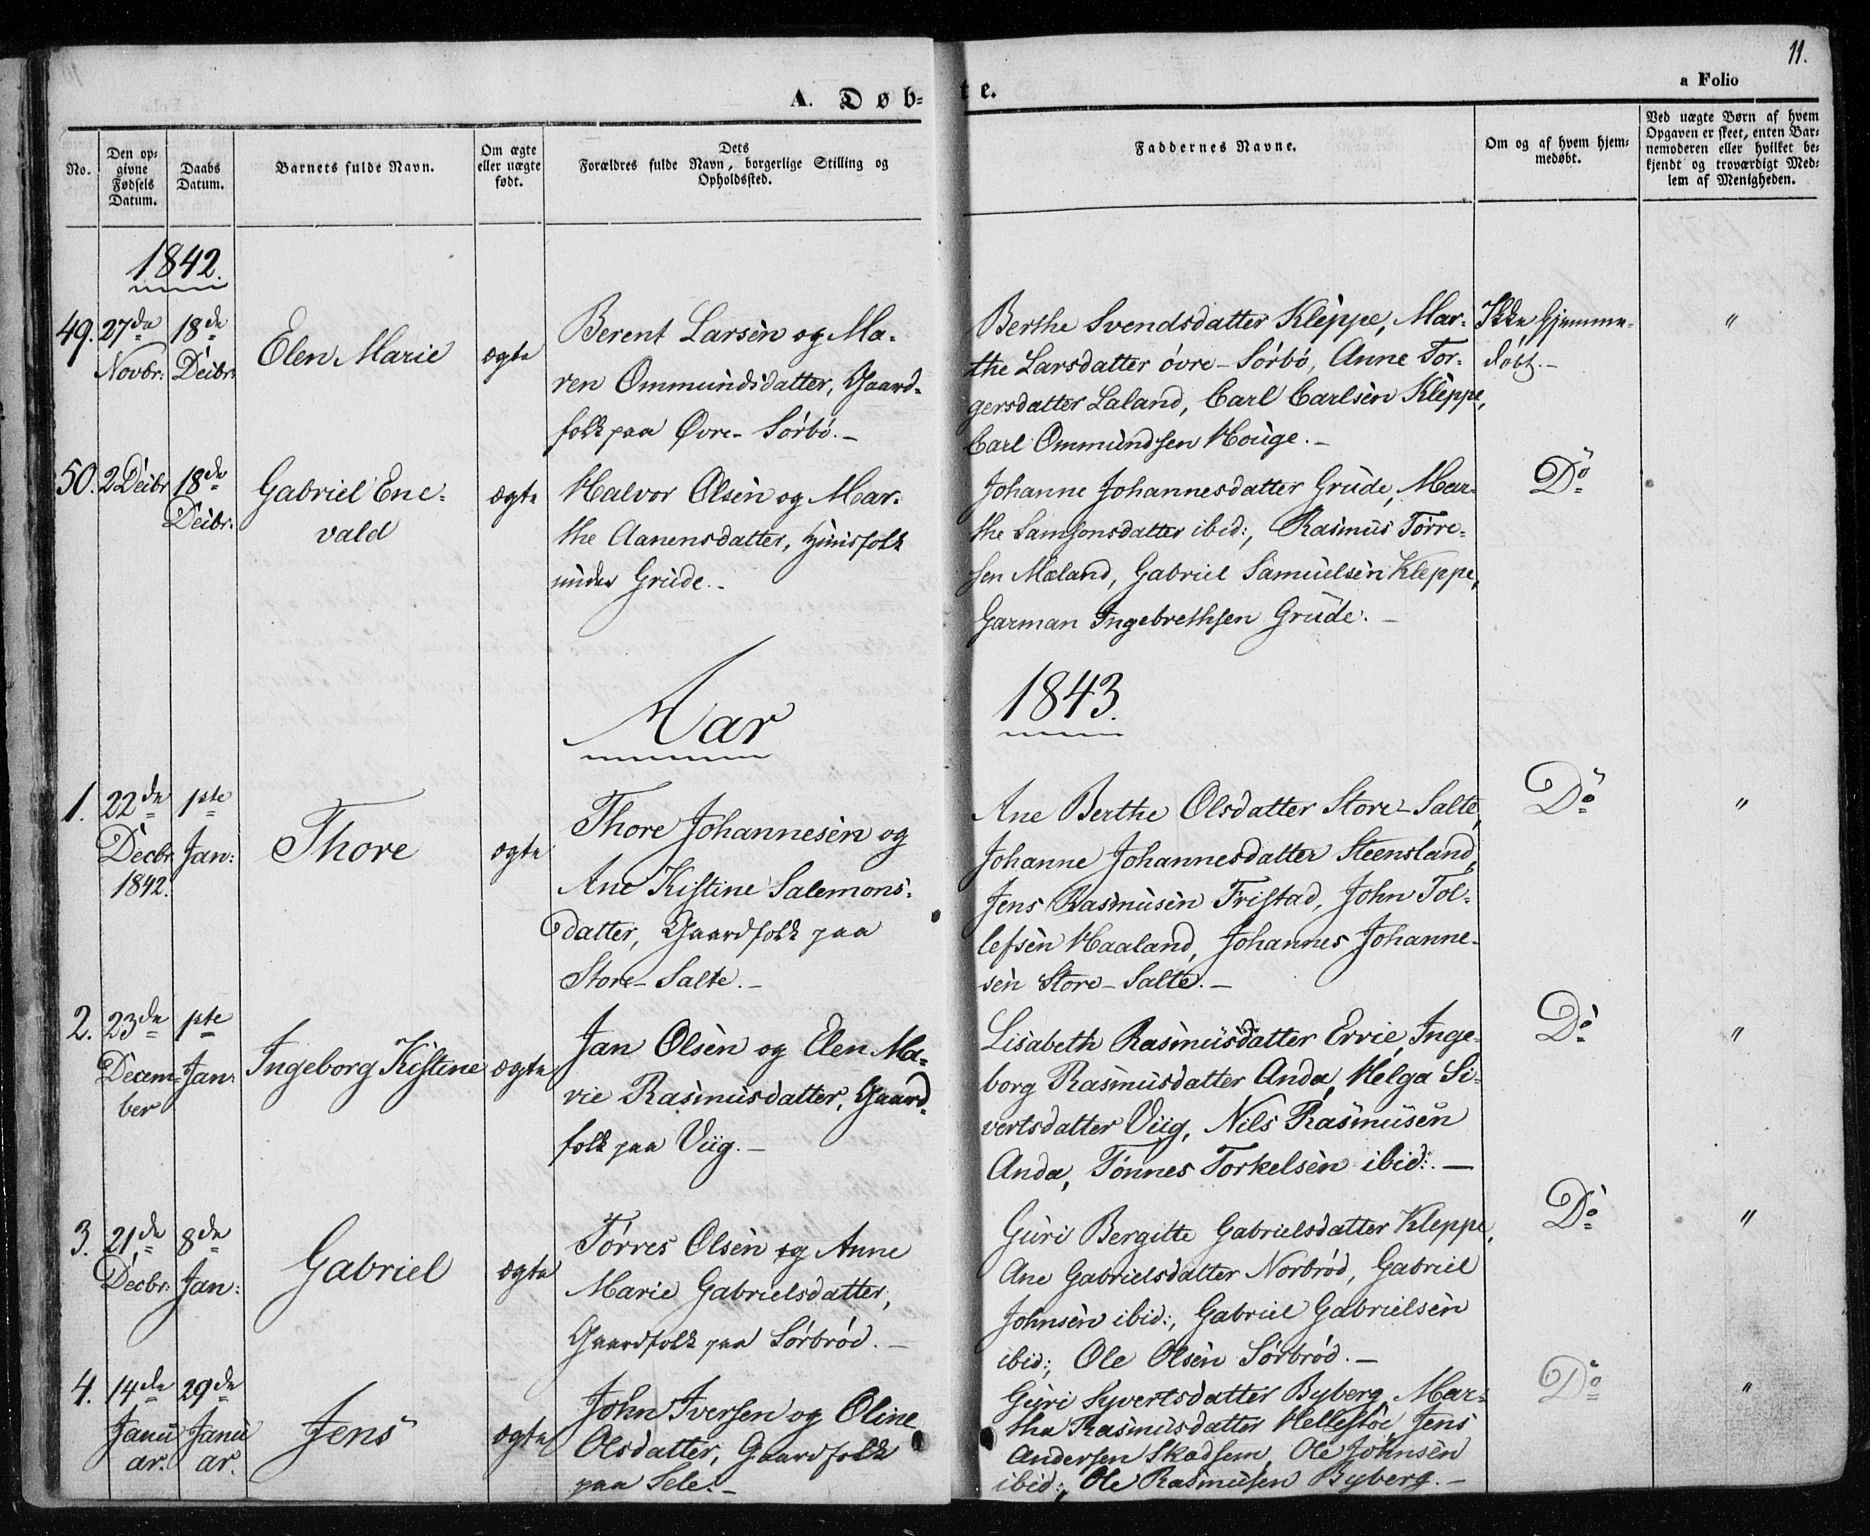 11.
A. Døbte.
a Folio
No.
Den opgivne Fødsels Datum.
Daabs Datum.
Barnets fulde Navn.
Om ægte eller uægte født.
Dets Forældres fulde Navn, borgerlige Stilling og Opholdssted.
Faddernes Navne.
Om og af hvem hjemmedøbt.
Ved uægte Børn af hvem Opgaven er skeet, enten Barnemoderen eller hvilket bekjendt og troværdigt Medlem af Menigheden.
1842.
49.
27de Novbr:
18de Decbr:
Elen Marie
ægte
Berent Larsen og Ma-
ren Ommundsdatter, Gaard-
folk paa Øvre-Sörbö.-
Berthe Svendsdatter Kleppe, Mar-
the Larsdatter övre-Sörbö, Anne Tor-
gersdatter Laland, Carl Carlsen Kleppe,
Carl Ommundsen Houge.-
Ikke hjemme-
döbt.-
"
50.
2 Decbr
18de Decbr:
Gabriel Ene-
vald
ægte
Halvor Olsen og Mar-
the Aanensdatter, Huusfolk
under Grude.-
Johanne Johannesdatter Grude, Mar-
the Samsonsdatter ibid:, Rasmus Törre-
sen Mæland, Gabriel Samuelsen Kleppe,
Garman Ingebrethsen Grude.-
Do
Aar 1843.
1.
22de Decbr. 1842.
1ste Jan:
Thore
ægte
Thore Johannesen og
Ane Kistine Salemons-
datter, Gaardfolk paa
Store-Salte.-
Ane Berthe Olsdatter Store-Salte,
Johanne Johannesdatter Steensland,
Jens Rasmusen Fristad, John Tol-
lefsen Haaland, Johannes Johanne-
sen Store-Salte.-
Do
"
2.
23de Decem-
ber
1ste Jan:
Ingeborg Kistine
ægte
Jan Olsen og Elen Ma-
rie Rasmusdatter, Gaard-
folk paa Viig.-
Lisabeth Rasmusdatter Ervie, Inge-
borg Rasmusdatter Anda, Helga Si-
vertsdatter Viig, Nils Rasmusen
Anda, Tönnes Torkelsen ibid:.-
Do
"
3.
21de Decbr:
8de Jan:
Gabriel
ægte
Törres Olsen og Anne
Marie Gabrielsdatter,
Gaardfolk paa Sörbröd.-
Guri Bergitte Gabrielsdatter Kleppe,
Ane Gabrielsdatter Norbröd, Gabriel
Johnsen ibid:, Gabriel Gabrielsen
ibid:, Ole Olsen Sörbröd.-
Do
"
4.
14de Janu
ar.
29de Janu
ar.
Jens
ægte
John Iversen og Oline
Olsdatter, Gaardfolk
paa Sele.-
Guri Syvertsdatter Byberg, Mar-
tha Rasmusdatter Hellestöe, Jens
Andersen Skadsem, Ole Johnsen
ibid:, Ole Rasmusen Byberg.-
Do
"